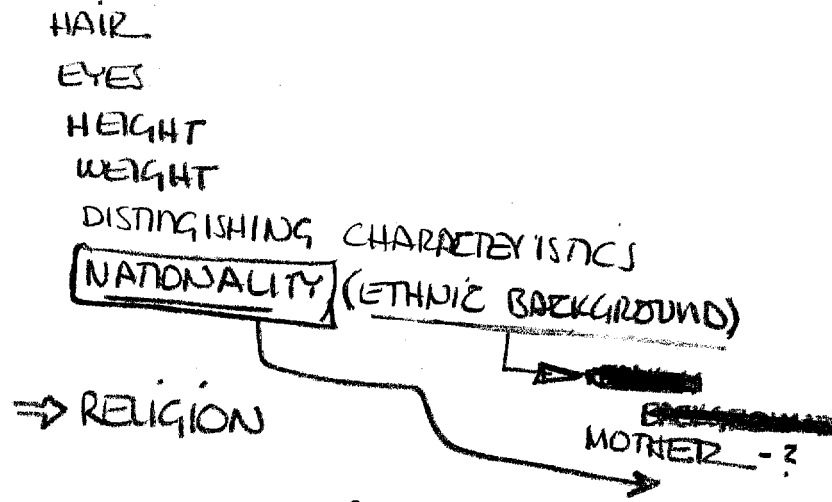 HAIR
EYES
HEIGHT
WEIGHT
DISTINGISHING CHARACTERISTICS
NATIONALITY (ETHNIC BACKGROUND)
⇒ RELIGION
MOTHER - ?